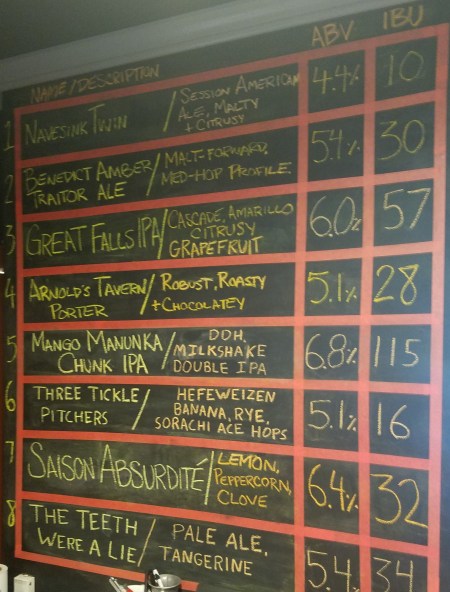 NAME/DESCRIPTION ABV IBU
1 NAVESINK TWIN / SESSION AMERICAN 4.4% 10
ALE, MALTY
+ CITRUSY
2 BENEDICT AMBER / MALT-FORWARD, 5.4% 30
TRAITOR ALE MED-HOP PROFILE
3 GREAT FALLS IPA / CASCADE, AMARILLO 6.0% 57
CITRUSY
GRAPEFRUIT
4 ARNOLD'S TAVERN / ROBUST, ROASTY 5.1% 28
PORTER + CHOCOLATEY
5 MANGO MANUNKA / DDH, 6.8% 115
CHUNK IPA MILKSHAKE
DOUBLE IPA
6 THREE TICKLE / HEFEWEIZEN 5.1% 16
PITCHERS BANANA, RYE,
SORACHI ACE HOPS
7 SAISON ABSURDITÉ / LEMON, 6.4% 32
PEPPERCORN,
CLOVE
8 THE TEETH / PALE ALE, 5.4 34
WERE A LIE TANGERINE